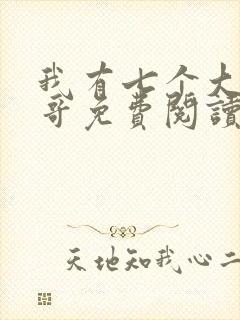 我有七个大
哥免費閱讀
天地知我心二